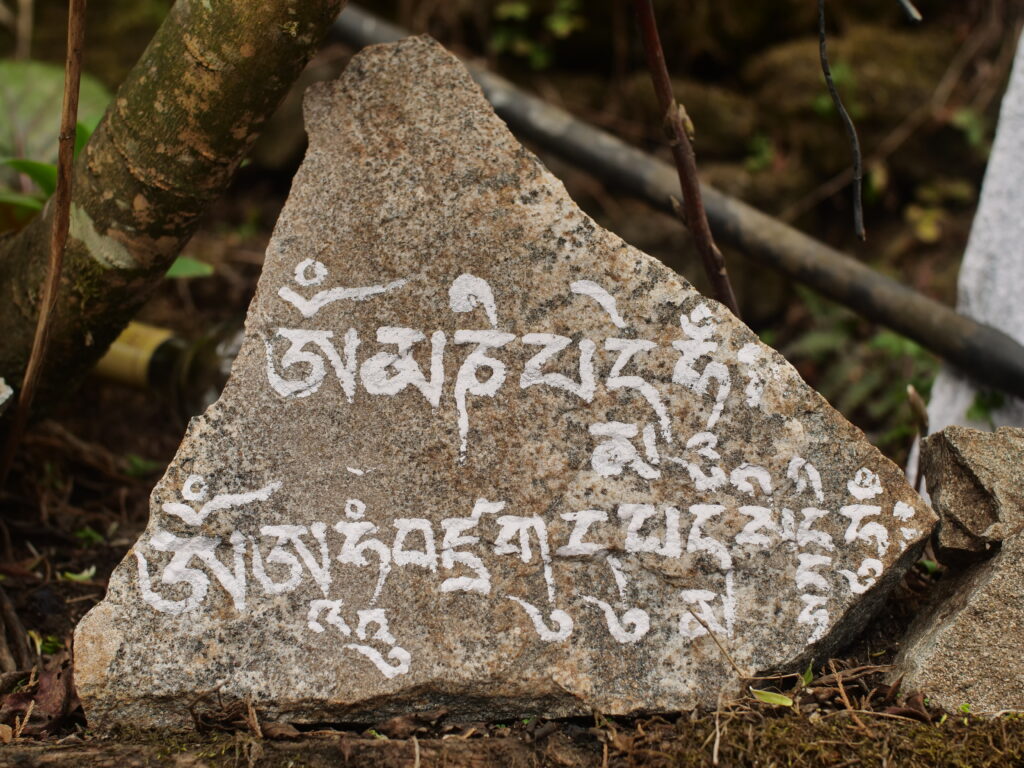 ༀ མ ཎི པ དྨེ ཧཱུྃ༔
ༀ ཨཱཿ ཧཱུྃ བཛྲ གུ རུ པདྨ སིདྡྷི ཧཱུྃ༔